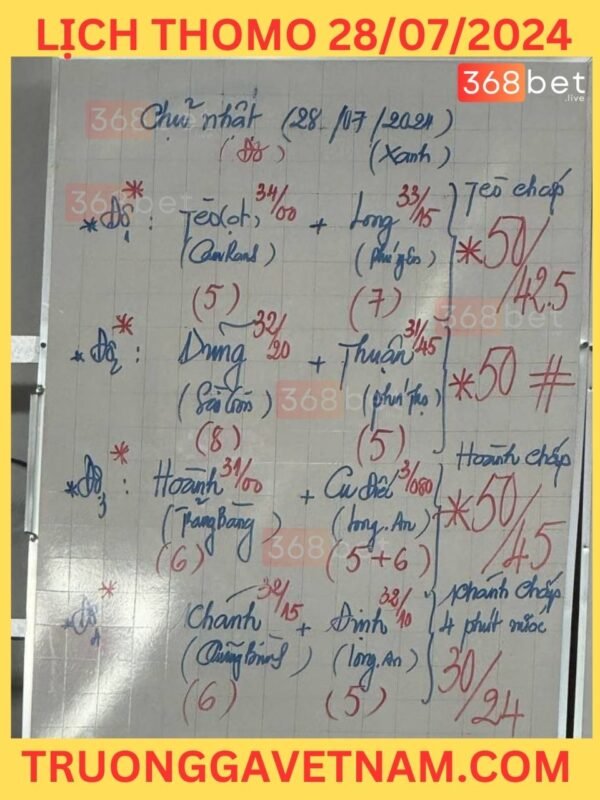 LỊCH THOMO 28/07/2024
368bet
.live
368
Chủ nhật (28/07/2024)
(Đỏ) (Xanh)
368bet
* Độ 1 * : Tèo(ot) 34/00 + Long 33/15 Tèo chấp
(CamRanh) (Phú Yên) * 50/42.5
(5) (7)
368bet
* Độ 2 * : Dung 32/20 + Thuận 31/45 * 50 #
(Sài Gòn) 368bet (Phú Thọ)
(8) (5)
* Độ 3 * : Hoành 31/00 + Cu Điếc 3/080 Hoành chấp
(Trảng Bàng) (Long.An) * 50/45
368bet
(6) (5+6)
* Độ 4 * Khánh 32/15 + Định 32/10 Khánh chấp
(Long.An) 4 phút nước
(6) (5) 30/24
TRUONGGAVETNAM.COM